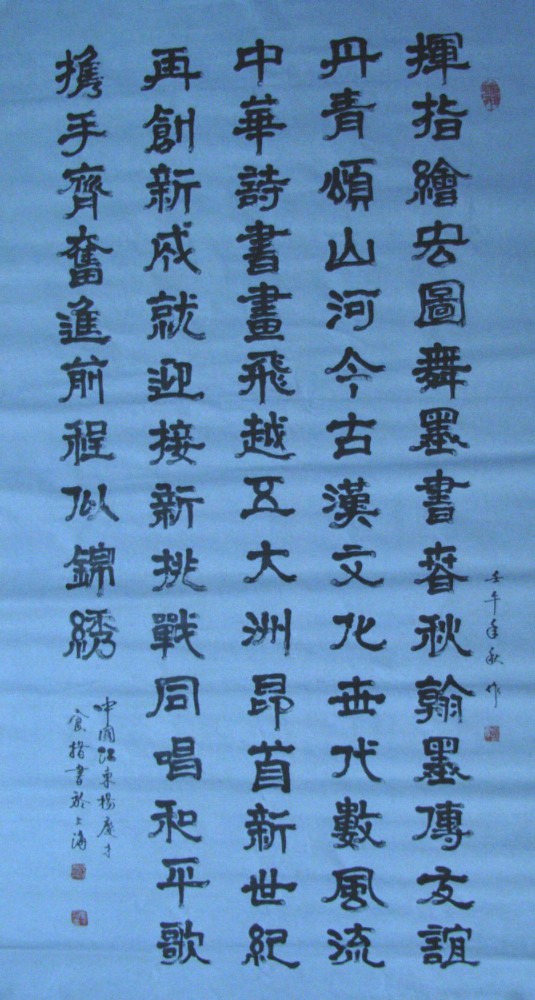 揮指繪宏圖舞墨書春秋翰墨傳友誼
丹青頌山河今古漢文化世代數風流
中華詩書畫飛越五大洲昂首新世紀
再創新成就迎接新挑戰同唱和平歌
攜手齊奮進前程似錦綉
壬午年秋作
中國江東楊慶才
食指書於上海